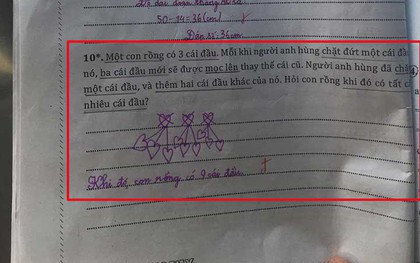 50-14=36(cm)
Đáp số: 36cm
10*. Một con rồng có 3 cái đầu. Mỗi khi người anh hùng chặt đứt một cái đầ
nó, ba cái đầu mới sẽ được mọc lên thay thế cái cũ. Người anh hùng đã chặ
một cái đầu, và thêm hai cái đầu khác của nó. Hỏi con rồng khi đó có tất c
nhiêu cái đầu?
Khi đó, con rồng có 9 cái đầu